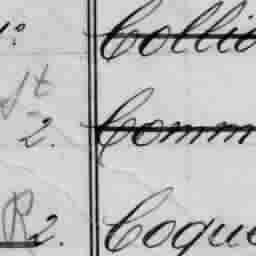 1° Collic
St
2. Comm
R 2. Coque